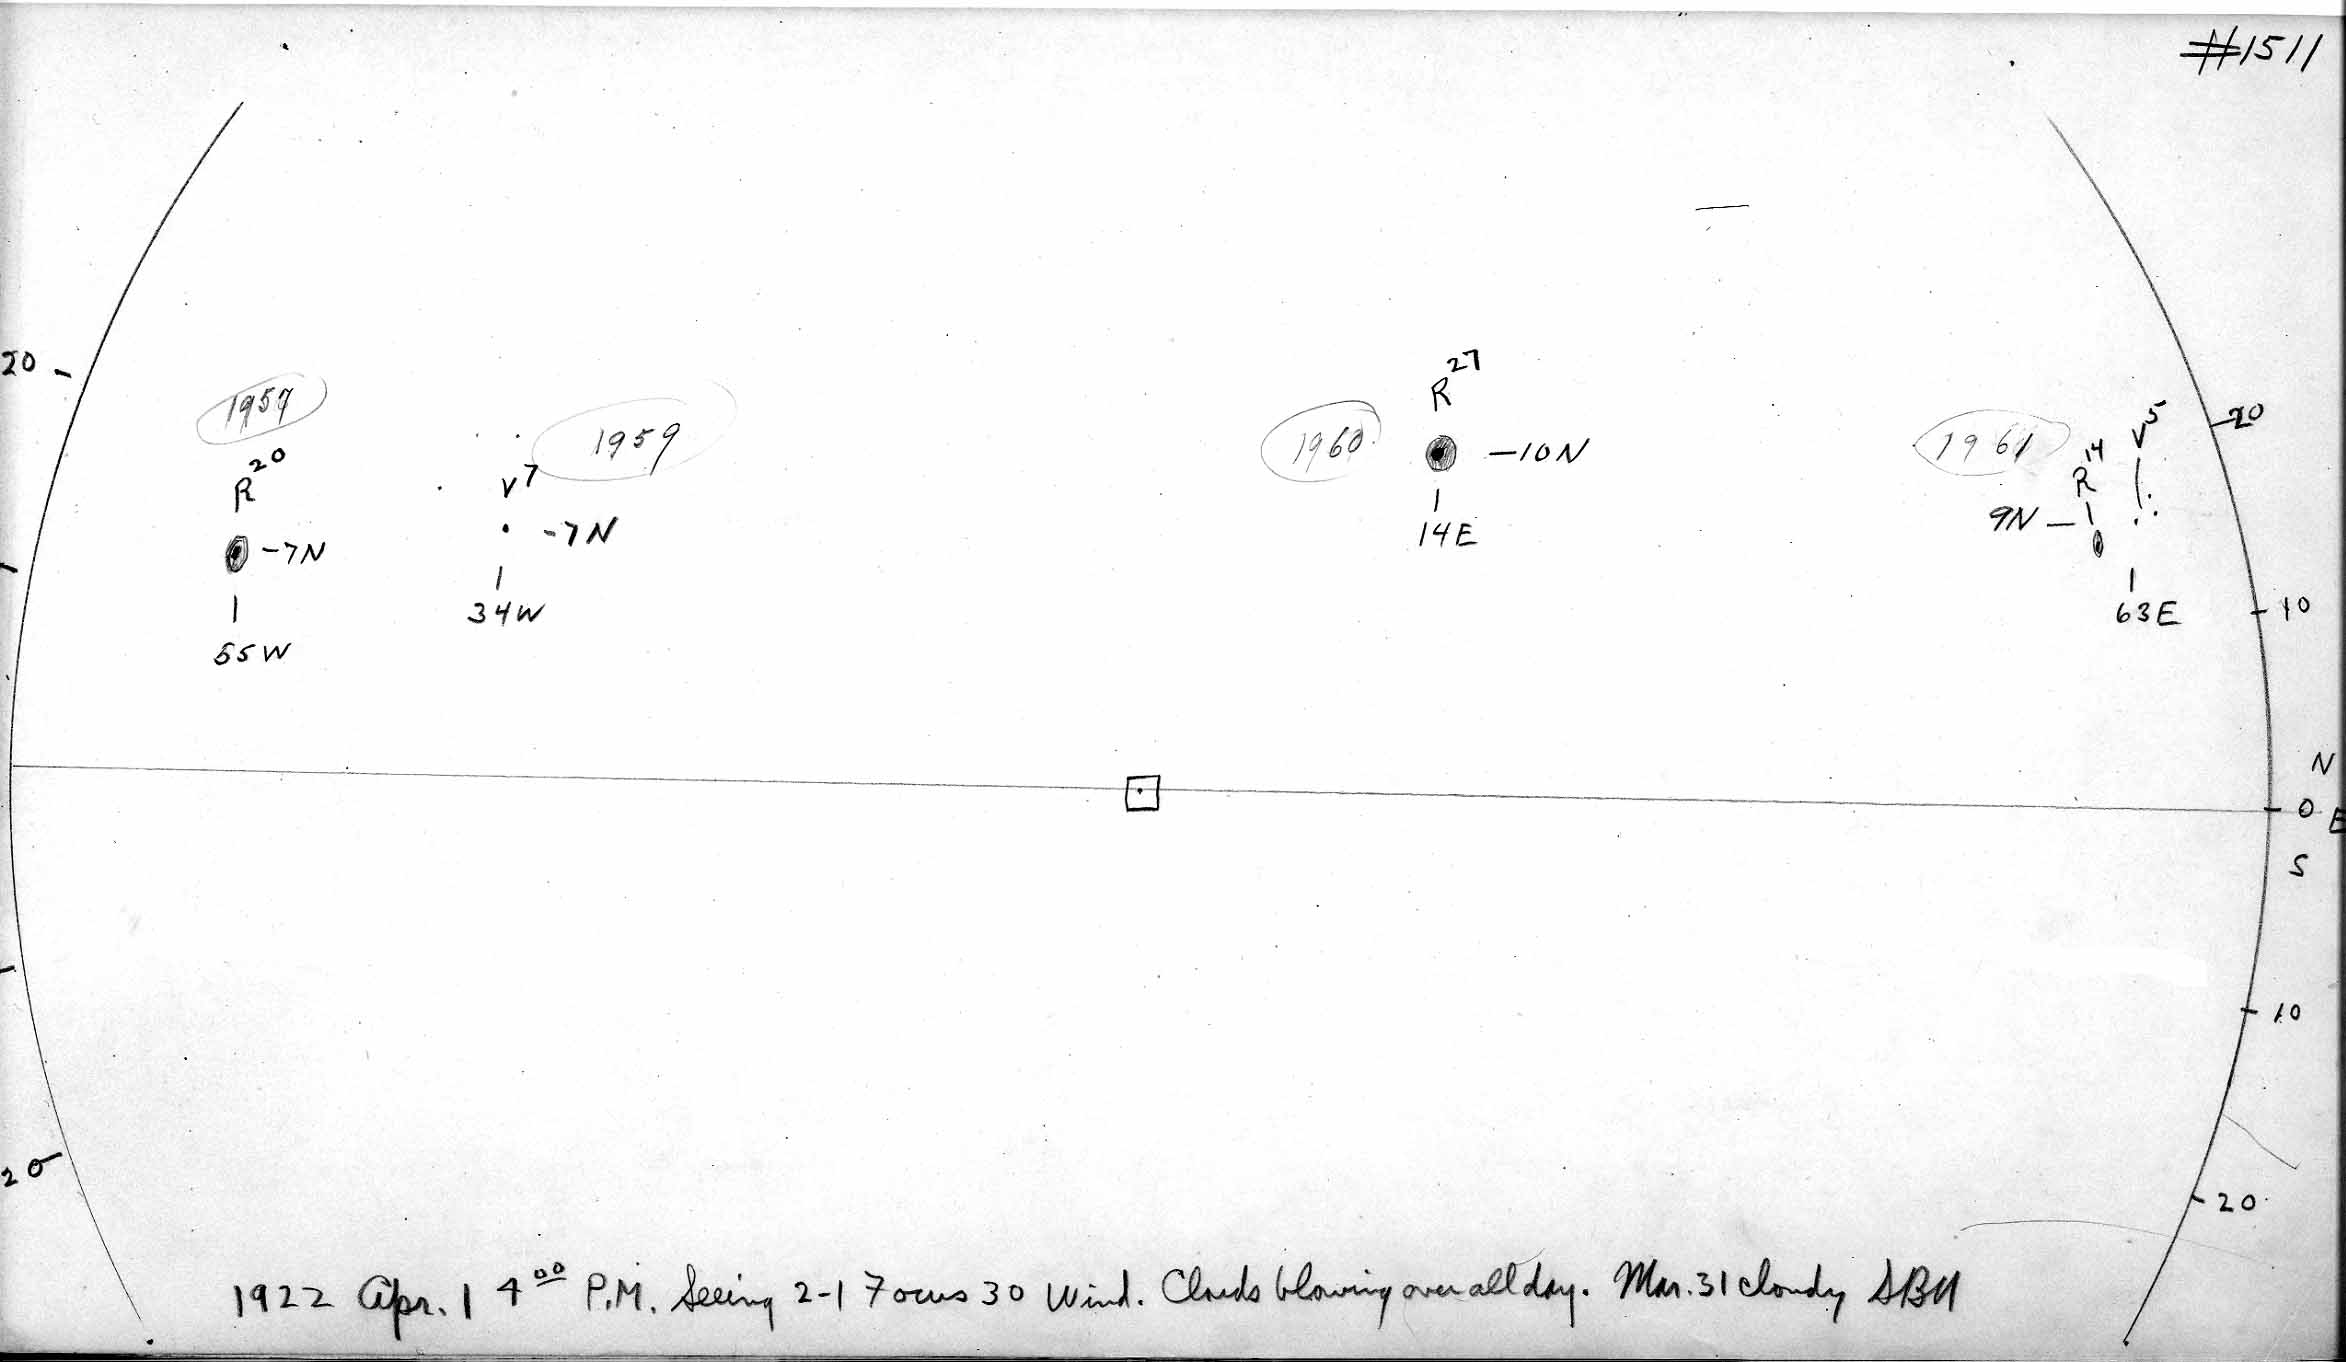 #1511
20
1957
R20
-7N
55W
1959
V7
-7N
34W
R27
1960
-10N
14E
1961
R14
V5
9N
63E
20
10
N
0
E
S
10
20
20
1922 Apr. 1 4 00 P.M. Seeing 2-1 Focus 30 Wind. Clouds blowing over all day. Mar. 31 cloudy